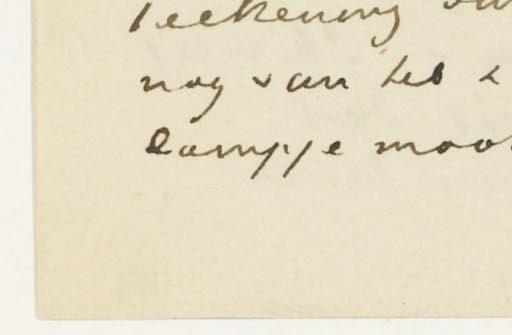 Teekening
nog van het
lampje mooi